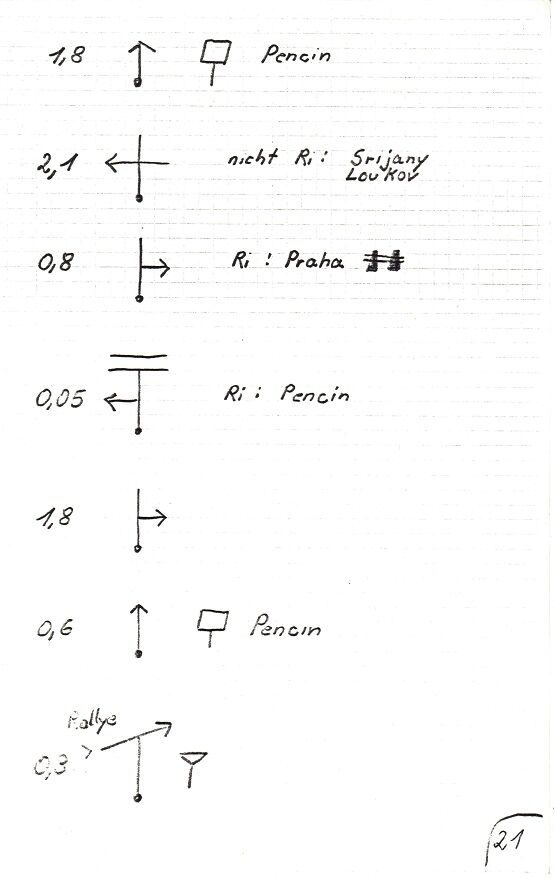 1,8 Pencin
2,1 nicht Ri: Srijany
Loukov
0,8 Ri: Praha
0,05 Ri: Pencin
1,8
0,6 Pencin
Rallye
0,3
21